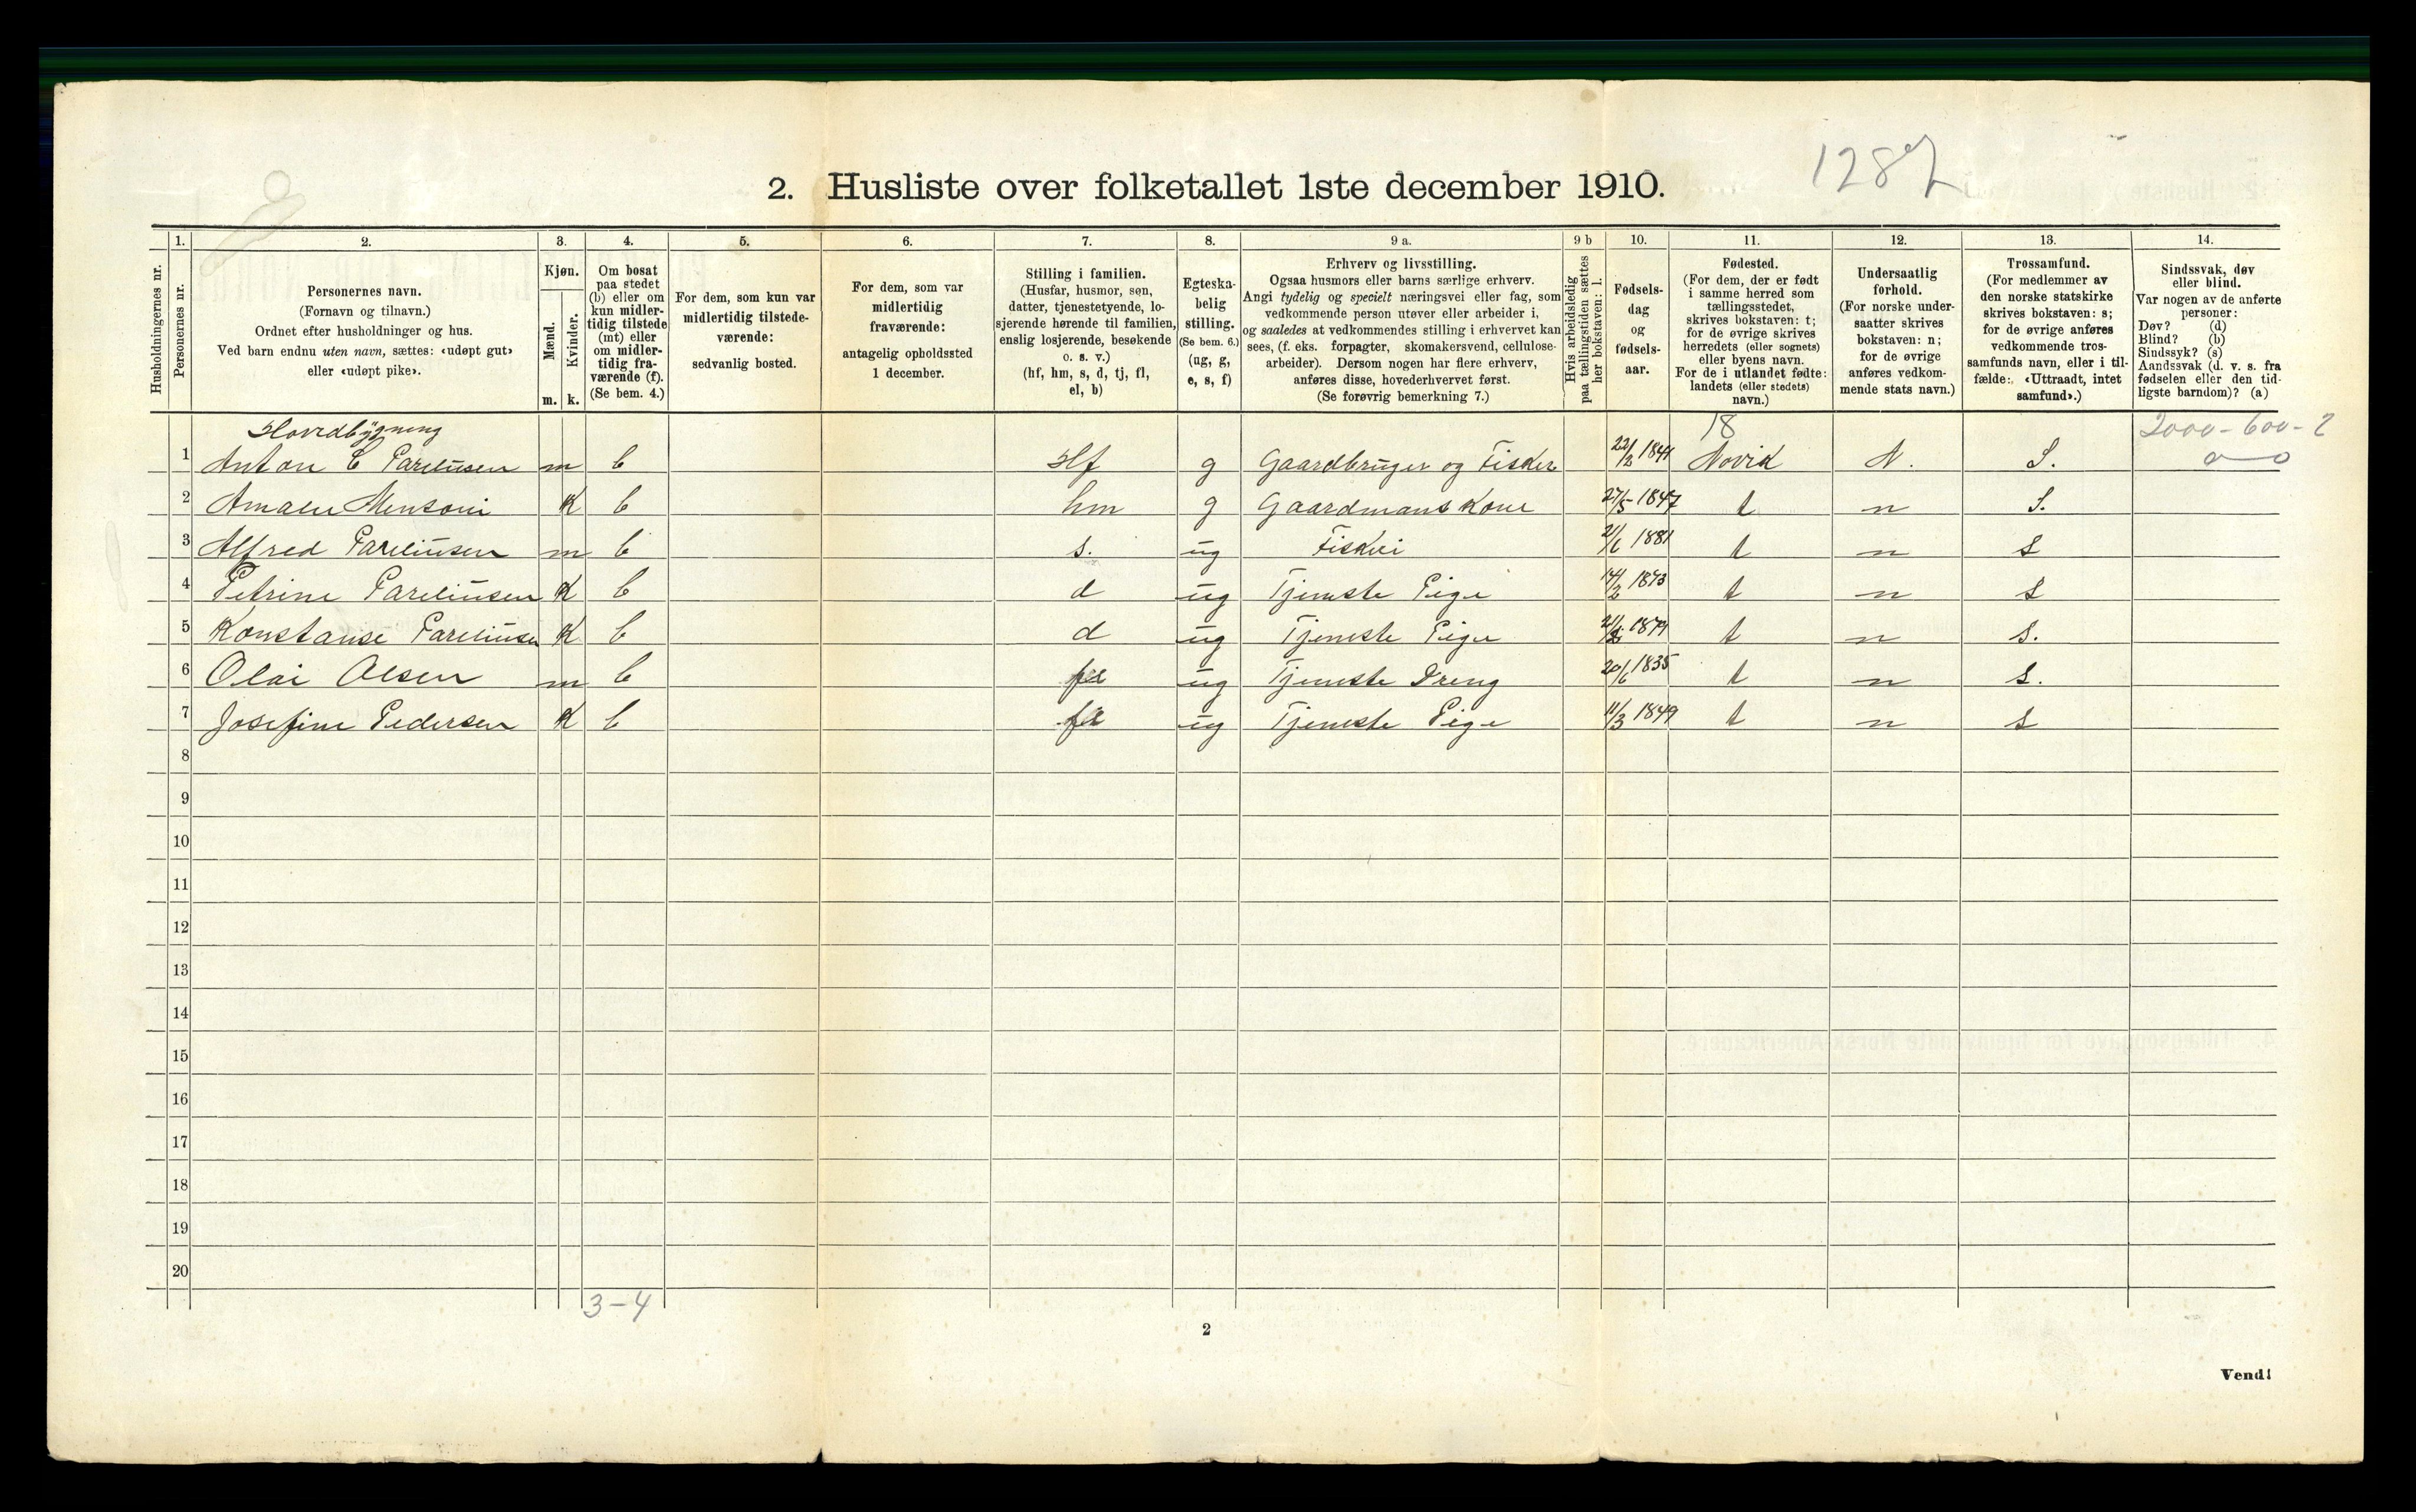 1287
2. Husliste over folketallet 1ste december 1910.
Husholdningernes nr.
1.
Personernes nr.
2.
Personernes navn.
(Fornavn og tilnavn.)
Ordnet efter husholdninger og hus.
Ved barn endnu uten navn, sættes: «udøpt gut»
eller «udøpt pike».
3.
Kjøn.
Mænd.
Kvinder.
m. k.
4.
Om bosat
paa stedet
(b) eller om
kun midler-
tidig tilstede
(mt) eller
om midler-
tidig fra-
værende (f).
(Se bem. 4.)
5.
For dem, som kun var
midlertidig tilstede-
værende:
sedvanlig bosted.
6.
For dem, som var
midlertidig
fraværende:
antagelig opholdssted
1 december.
7.
Stilling i familien.
(Husfar, husmor, søn,
datter, tjenestetyende, lo-
sjerende hørende til familien,
enslig losjerende, besøkende
o. s. v.)
(hf, hm, s, d, tj, fl,
el, b)
8.
Egteska-
belig
stilling.
(Se bem. 6.)
(ug, g,
e, s, f)
9 a.
Erhverv og livsstilling.
Ogsaa husmors eller barns særlige erhverv.
Angi tydelig og specielt næringsvei eller fag, som
vedkommende person utøver eller arbeider i,
og saaledes at vedkommendes stilling i erhvervet kan
sees, (f. eks. forpagter, skomakersvend, cellulose-
arbeider). Dersom nogen har flere erhverv,
anføres disse, hovederhvervet først.
(Se forøvrig bemerkning 7.)
9 b
Hvis arbeidsledig
paa tællingstiden sættes
her bokstaven: l.
10.
Fødsels-
dag
og
fødsels-
aar.
11.
Fødested.
(For dem, der er født
i samme herred som
tællingsstedet,
skrives bokstaven: t;
for de øvrige skrives
herredets (eller sognets)
eller byens navn.
For de i utlandet fødte:
landets (eller stedets)
navn.)
12.
Undersaatlig
forhold.
(For norske under-
saatter skrives
bokstaven: n;
for de øvrige
anføres vedkom-
mende stats navn.)
13.
Trossamfund.
(For medlemmer av
den norske statskirke
skrives bokstaven: s;
for de øvrige anføres
vedkommende tros-
samfunds navn, eller i til-
fælde: «Uttraadt, intet
samfund».)
14.
Sindssvak, døv
eller blind.
Var nogen av de anførte
personer:
Døv? (d)
Blind? (b)
Sindssyk? (s)
Aandssvak (d. v. s. fra
fødselen eller den tid-
ligste barndom)? (a)
Hovedbygning 18 2000-600-2
1 Anton C Pareliusen m b Hf g Gaardbruger og Fisker 22/2 Novik N. S. 0-0
2 Amalie b hm g Gaardmans Kone 27/5 1847 t n S.
K
3 Alfred Pareliusen m b s. ug Fiskeri 1881 t n s
4 Petrine Pareliusen K b d ug Tjeneste Pige 14/2 1873 t n s
5 Konstanse Pareliusen K b d ug Tjeneste Pige 1879 t n s.
6 Olai Olsen m b ug Tjeneste Dreng 20/6 1835 t n s.
7 Josefine Pedersen K b ug Tjeneste Pige 11/3 1849 t n s
8
9
10
11
12
13
14
15
16
17
18
19
20
3-4
2
Vend!